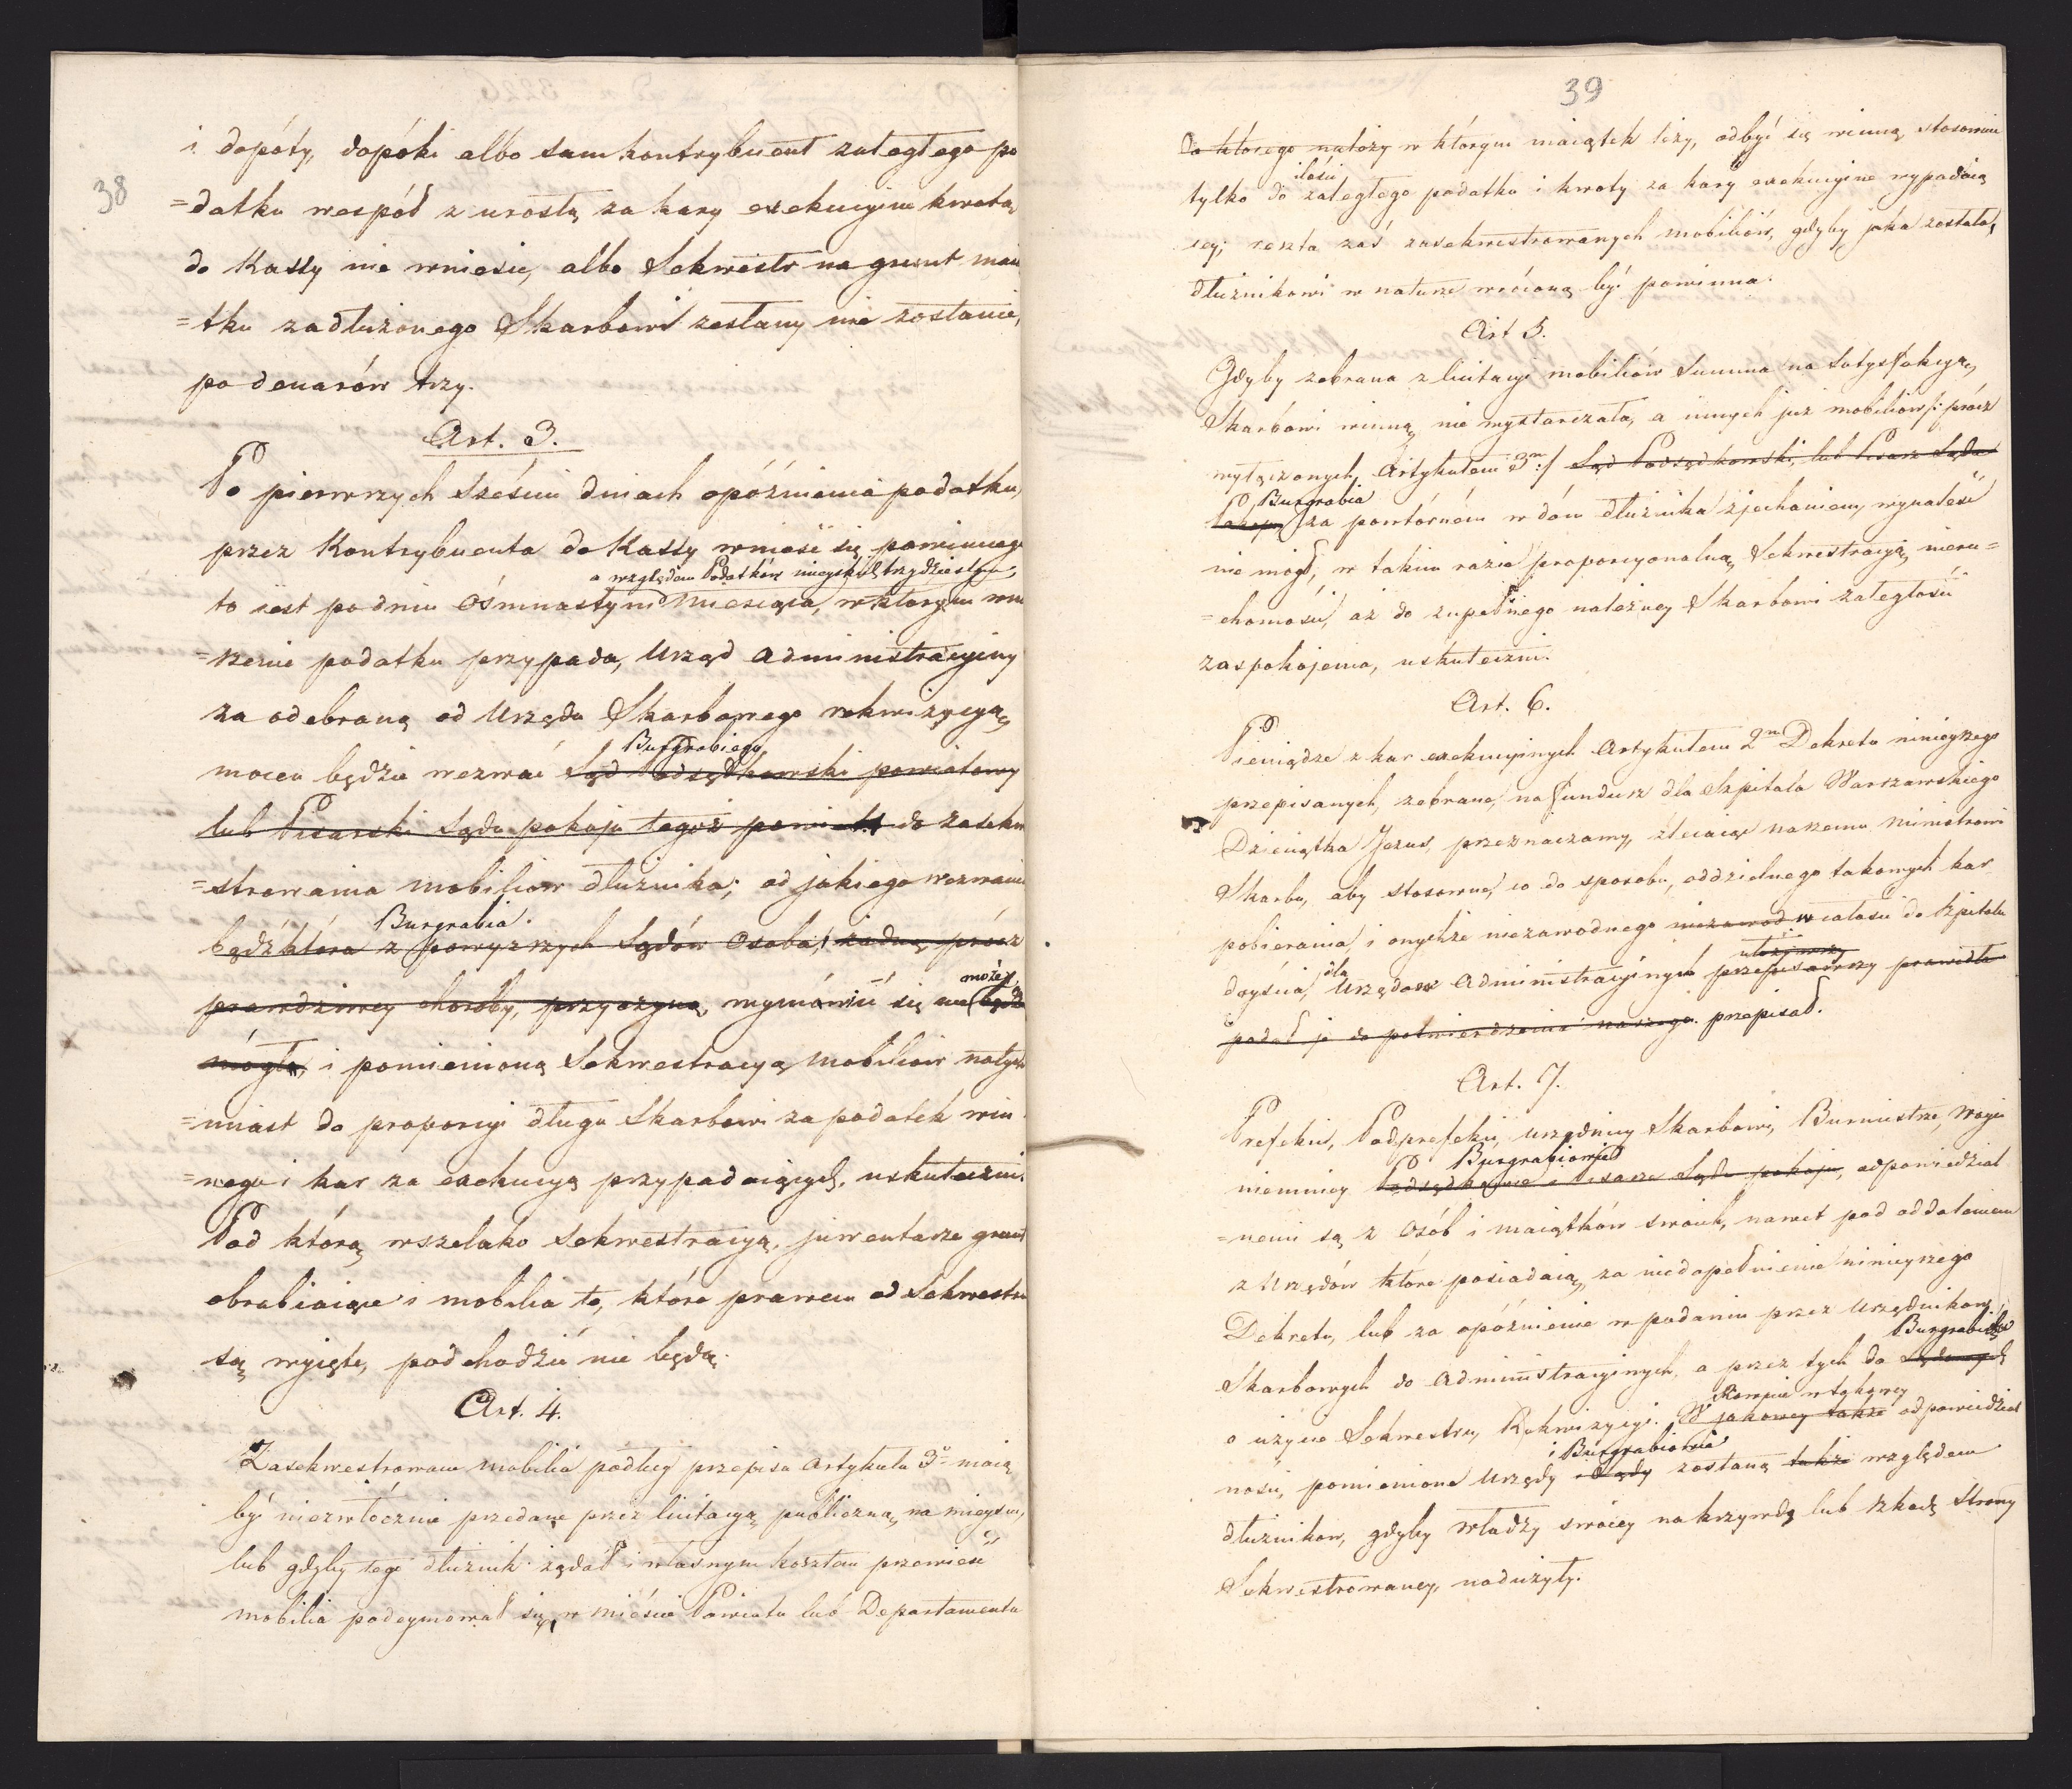 38
i dopóty, dopóki albo sam kontrybuent zaległego po
=datku wespół z urosłą za kary exekucyine kwotą
do Kassy nie wniesie, albo Sekwestr na grunt maią
=tku zadłużonego Skarbowi zesłany nie zostanie,
po denarów trzy.
Art. 3.
Po pierwszych sześciu dniach opóźnienia podatku,
przez Kontrybuenta do Kassy wnieść się powinnego
a względem Podatków mieyskich trzydziestym,
to iest po dniu ósmnastym Miesiąca, w którym wno
=szenie podatku przypada, Urząd Administracyiny
za odebraną od Urzędu Skarbowego rekwizycyą,
Burgrabiego
mocen będzie wezwać Sąd Podsędkowski powiatowy
lub Pisarski Sądu pokoju tegoż powiatu do zasekwe
=strowania mobiliów dłużnika; od jakiego wezwania
Burgrabia.
bądź która z powyższych Sądów Osoba, żadną prócz
może,
prawdziwey choroby, przyczyną, wymówić się nie będzie
mogła, i pomienioną Sekwestracyą Mobiliów natych
=miast do proporcyi długu Skarbowi za podatek win
=nego i kar za exekucyą przypadaiących, uskuteczni.
Pod którą wszelako Sekwestracyą, inwentarze grunt
obrabiaiące i mobilia te, które prawem od Sekwestru
są wyięte, podchodzić nie będą.
Art. 4.
Zasekwestrowane mobilia podług przepisu Artykułu 3o maią
być niezwłócznie przedane przez licitacyą publiczną, na mieyscu,
lub gdyby tego dłużnik żądał i własnym kosztem przewieść
mobilia podeymował się, w mieście Powiatu lub Departamentu
39
do którego należy w którym maiątek leży, odbyć się winną stosownie
ilości
tylko do zaległego podatku i kwoty za kary exekucyine wypadaią
cey; reszta zaś zasekwestrowanych mobiliów, gdyby jaka została,
dłużnikowi w naturze wróconą być powinna.
Art 5.
Gdyby zebrana z licitacyi mobiliów Summa na Satysfakcyą,
Skarbowi winną, nie wystarczała, a innych już mobiliów /: prócz
wyłączonych Artykułem 3m :/ Sąd Podsędkowski, lub Pisarz Sądu
Burgrabia
za powtórném w dóm dłużnika zjechaniem, wynaleść
nie mógł, w takim razie proporcyonalną Sekwestracyą nieru=
=chomości, aż do zupełnego należney Skarbowi zaległości
zaspokojenia, uskuteczni.
Art. 6.
Pieniądze z kar exekucyinych Artykułem 2m Dekretu ninieyszego
przepisanych, zebrane, na fundusz dla Szpitala Warszawskiego
Dzieciątka Jezus, przeznaczamy, zlecaiąc naszemu Ministrowi
Skarbu, aby stosowne, co do sposobu, oddzielnego takowych kar
pobierania, i onychże niezawodnego w całości do Szpitala
ułożywszy
dla
doyścia, Urzędów Administracyinych przepisawszy prawidła
podał je do potwierdzenia naszego. przepisał.
Art. 7.
Prefekci, Podprefekci, Urzędnicy Skarbowi, Burmistrze, Woyci
Burgrabiowie
niemniey Podsędkowie i Pisarze Sądu pokoju, odpowiedzial
=nemi są z Osób i maiątków swoich, nawet pod oddaleniem
z Urzędów które posiadaią, za niedopełnienie ninieyszego
Dekretu, lub za opóźnienie w podaniu przez Urzędników
Burgrabiów
Skarbowych do Administracyinych, a przez tych do Sądowych
Równie w takowey
o użycie Sekwestru, Rekwizycyi. W jakowey także odpowiedzial
i Burgrabiowie
ności, pomienione Urzędy i Sądy zostaną także względem
dłużników, gdyby władzy swoiey na krzywdę lub szkodę Strony
Sekwestrowaney, nadużyły.